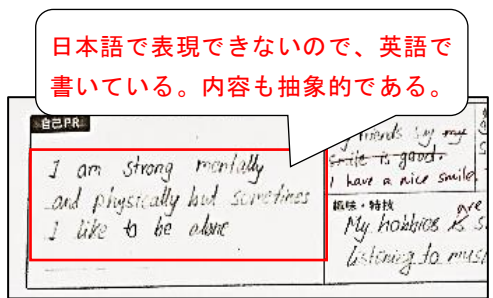 日本語で表現できないので、英語で
書いている。内容も抽象的である。
自己PR
I am strong mentally
and physically but sometimes
I like to be alone
friends say my
smile is good.
I have a nice smile.
趣味・特技
are
My hobbies is s
listening to musi